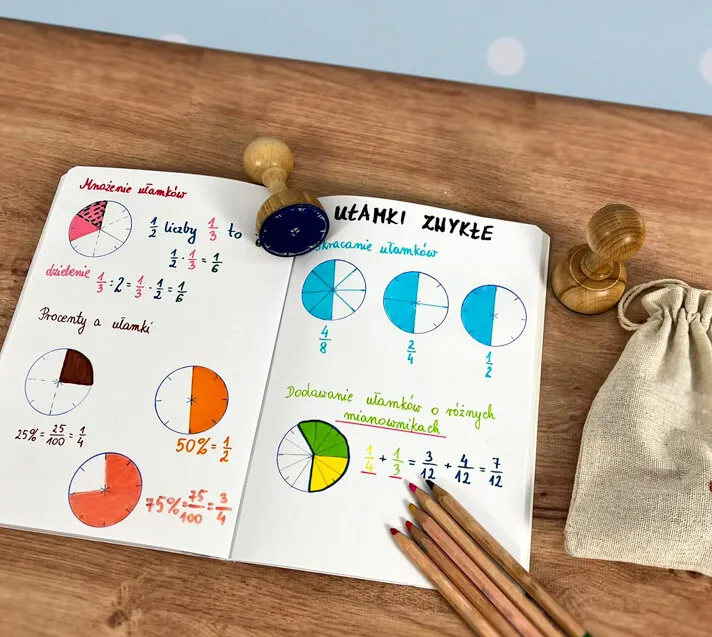 Mnożenie ułamków
1/2 liczby 1/3 to
1/2 · 1/3 = 1/6
dzielenie 1/3 : 2 = 1/3 · 1/2 = 1/6
Procenty a ułamki
25% = 25/100 = 1/4
50% = 1/2
75% = 75/100 = 3/4
UŁAMKI ZWYKŁE
Skracanie ułamków
4/8
2/4
1/2
Dodawanie ułamków o różnych
mianownikach
1/4 + 1/3 = 3/12 + 4/12 = 7/12